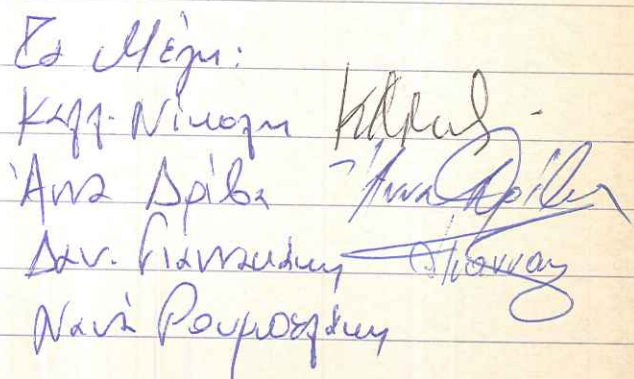 Τα Μέλη:
Καλλ. Νικολη
Άννα Δρίβα Άννα Δρίβα
Δαν. Γιαννακάκη
Νανά Ρουμπελάκη